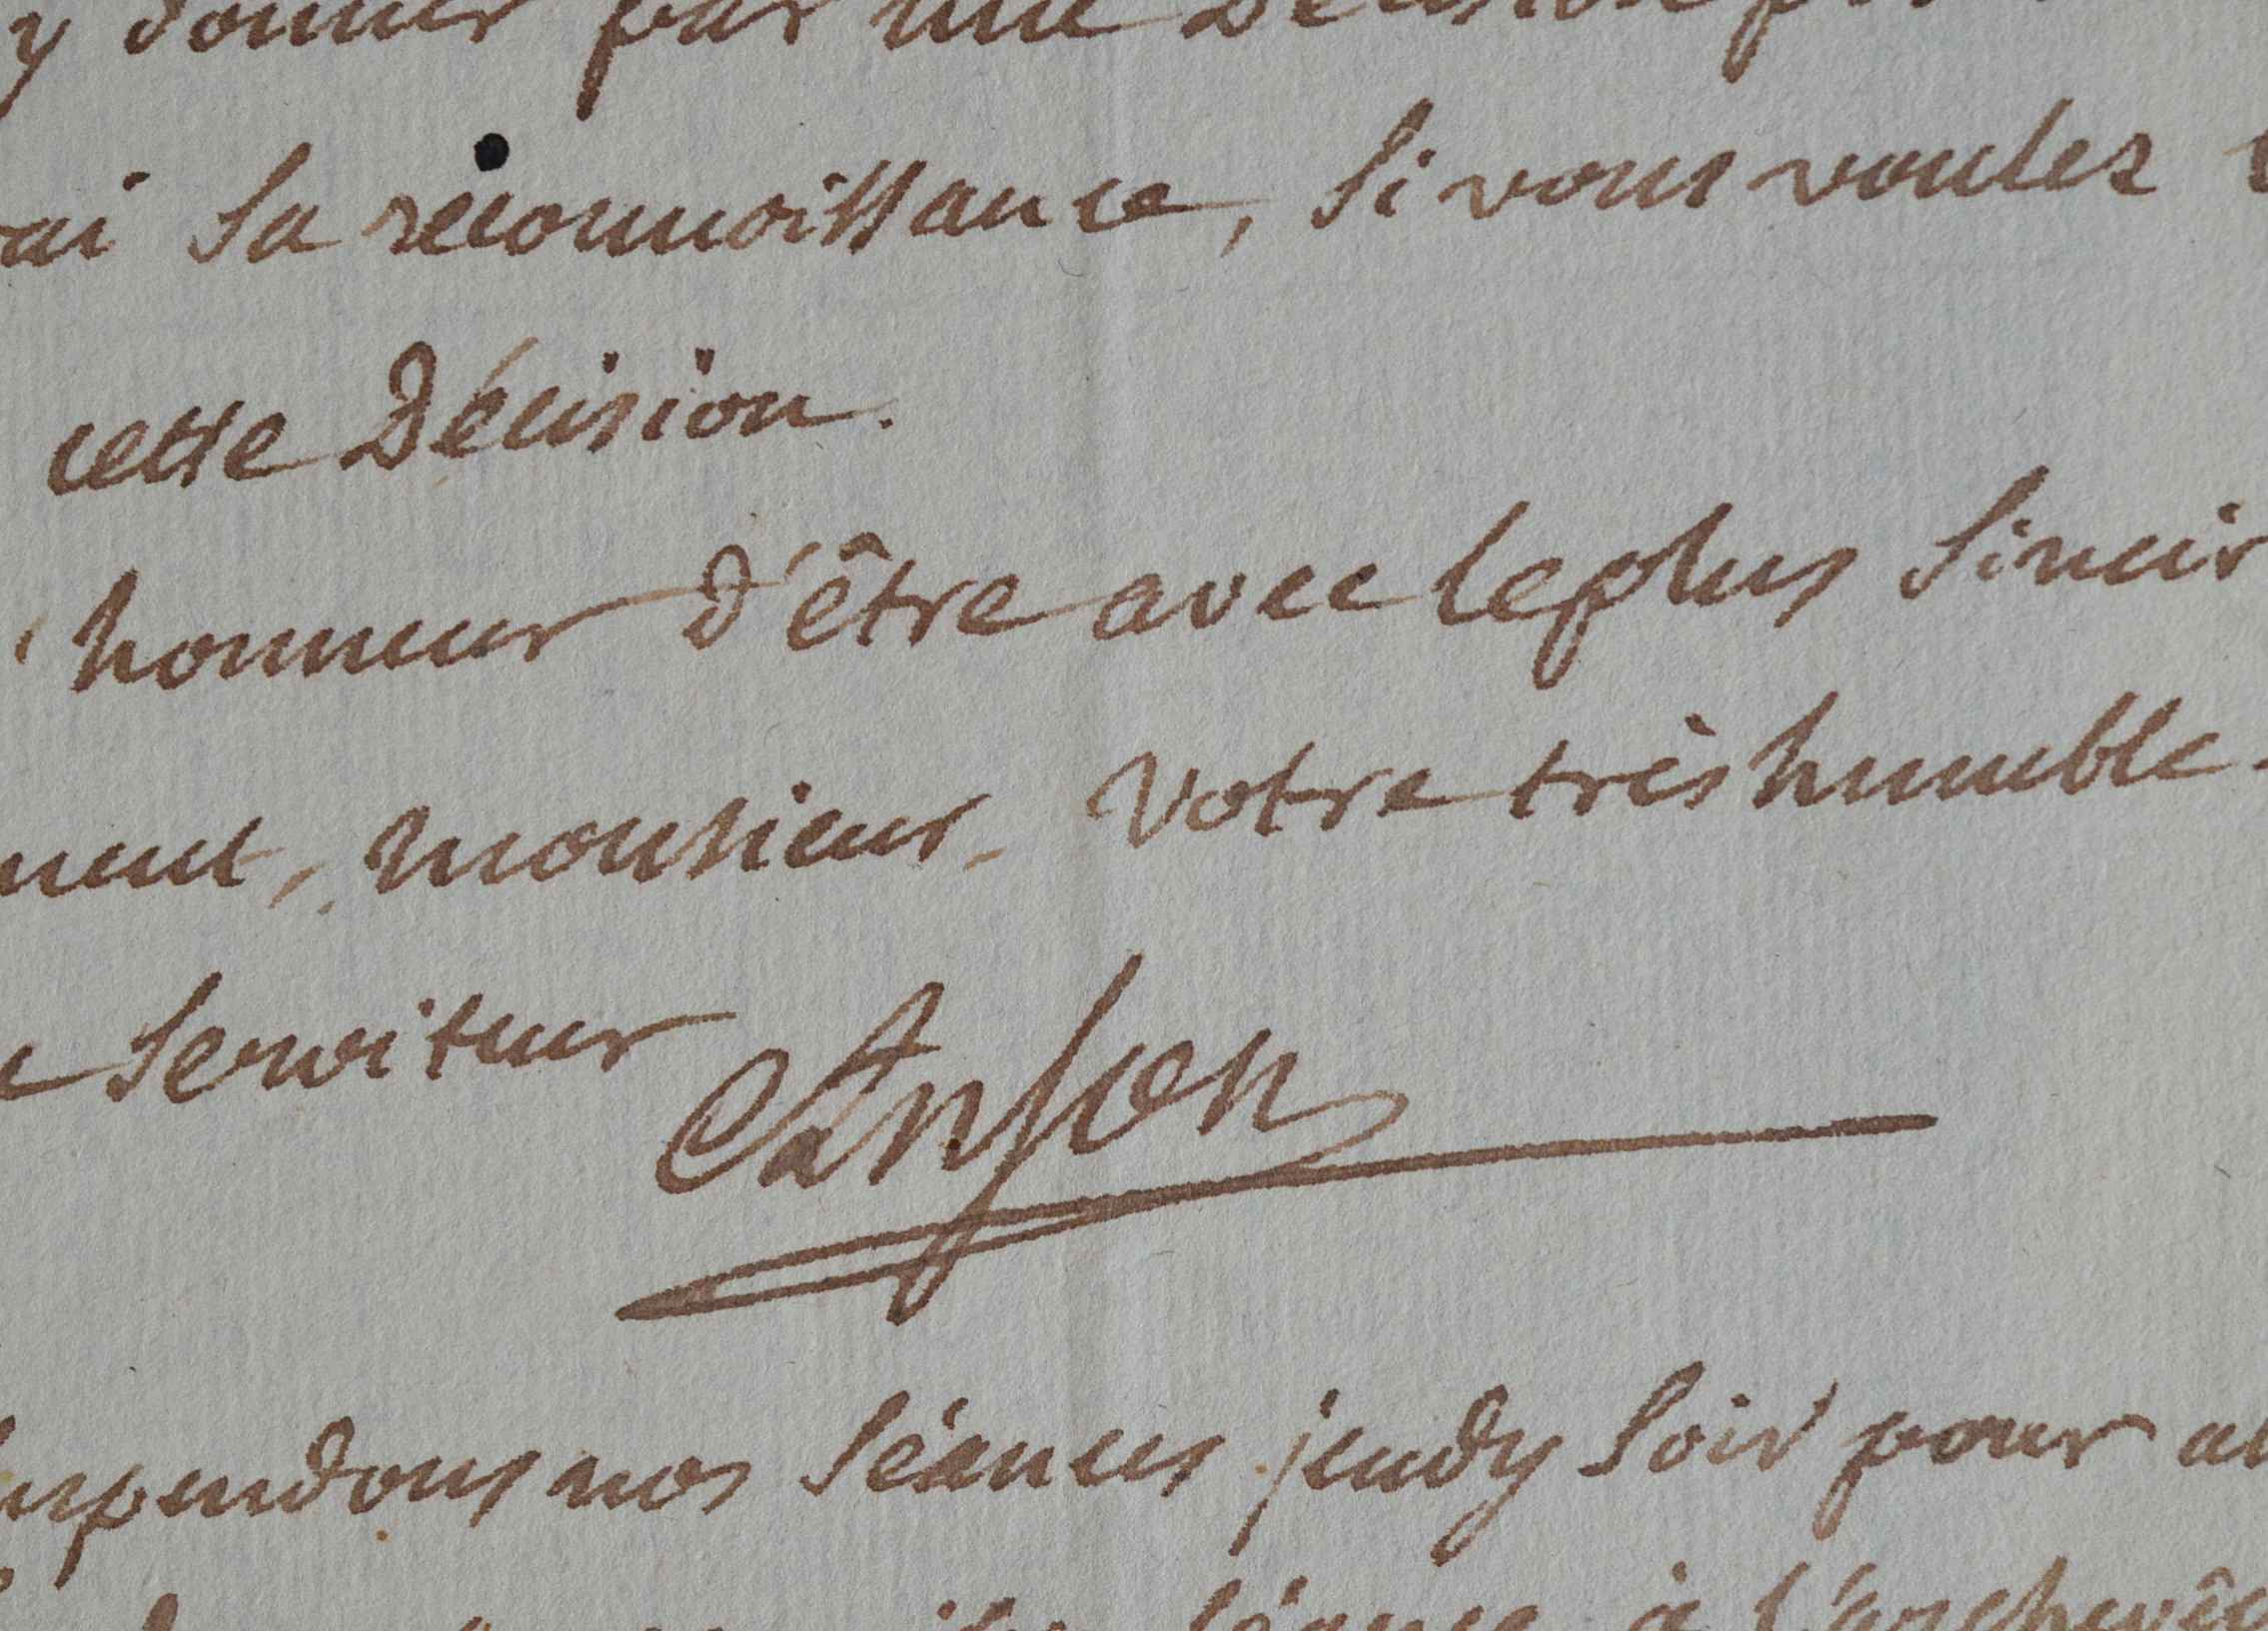 y donner par une Décision
ai sa reconnoissance, si vous voulez
cette Décision.
honneur d'être avec le plus sincer
ment, monsieur. Votre très humble
serviteur Anson
uspendons nos séances jeudy soir pour al
séance à l'archevêc